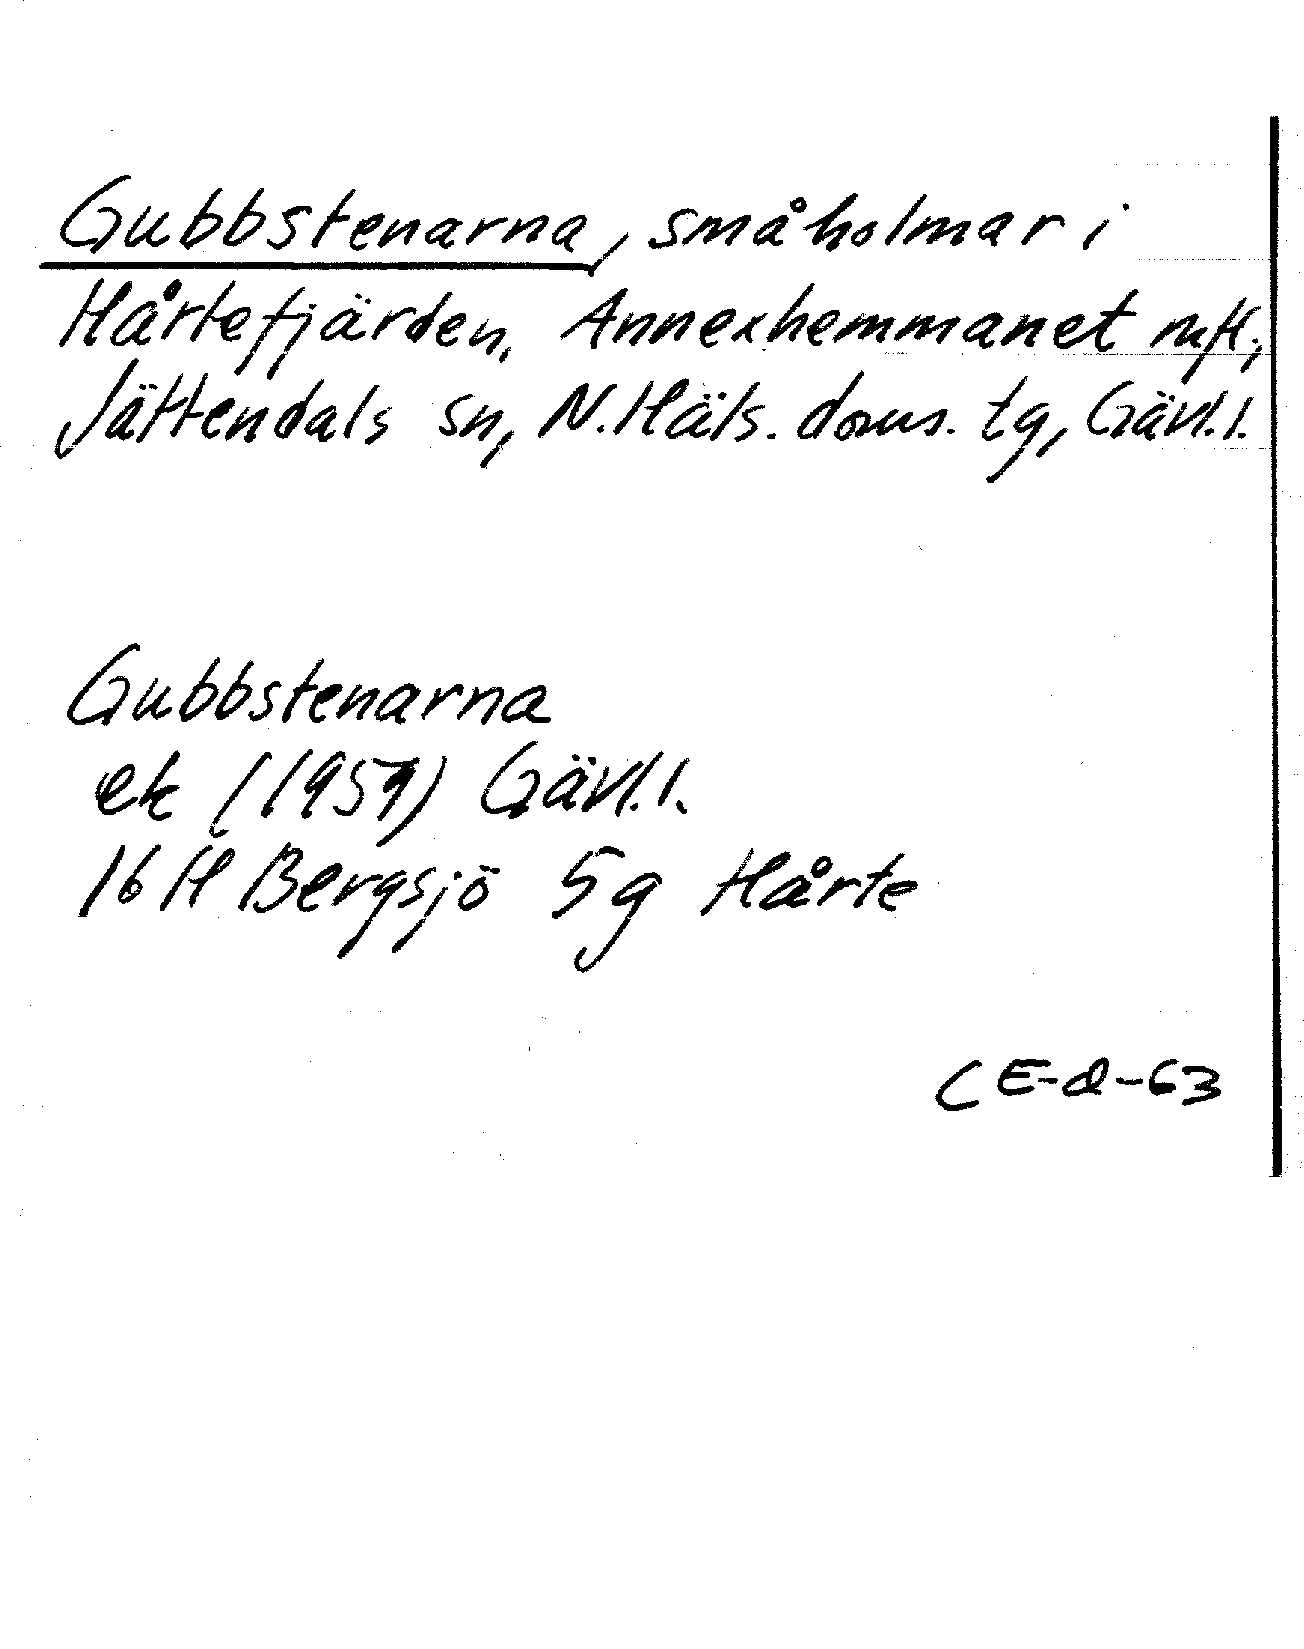 Gubbstenarna, småholmar i
Hårtefjärden, Annexhemmanet
Jättendals sn, N. Häls. doms. tg, Gävl. l.
Gubbstenarna
ek (1959) Gävl. l.
16 H Bergsjö 5g Hårte
CE-d-63